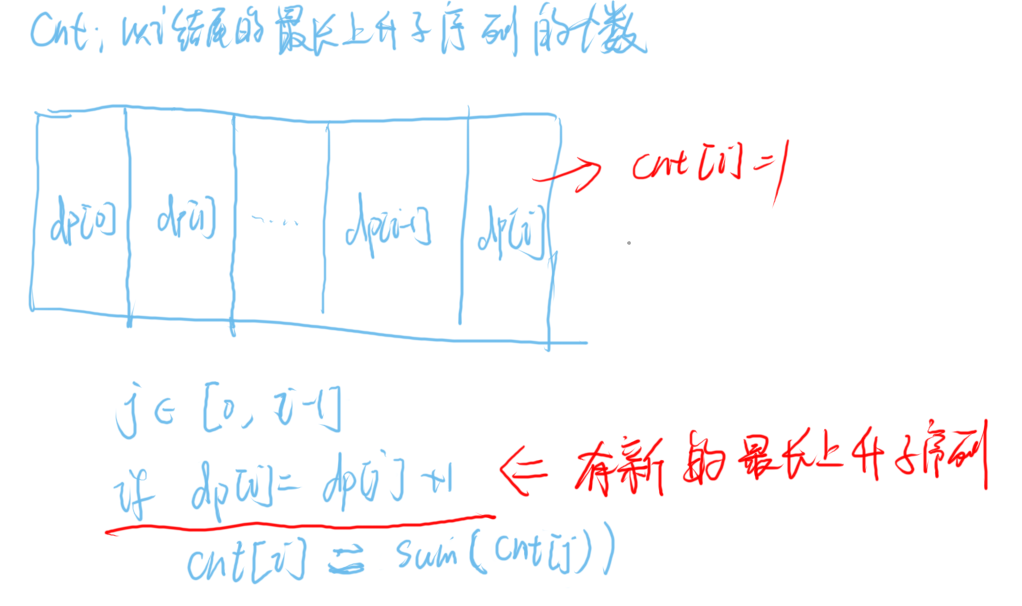 Cnt: 以i结尾的最长上升子序列的个数
dp[0] dp[1] ..... dp[i-1] dp[i] → cnt[i]=1
j ∈ [0, i-1]
if dp[i] = dp[j] +1 ⇐ 有新的最长上升子序列
cnt[i] = sum(cnt[j])